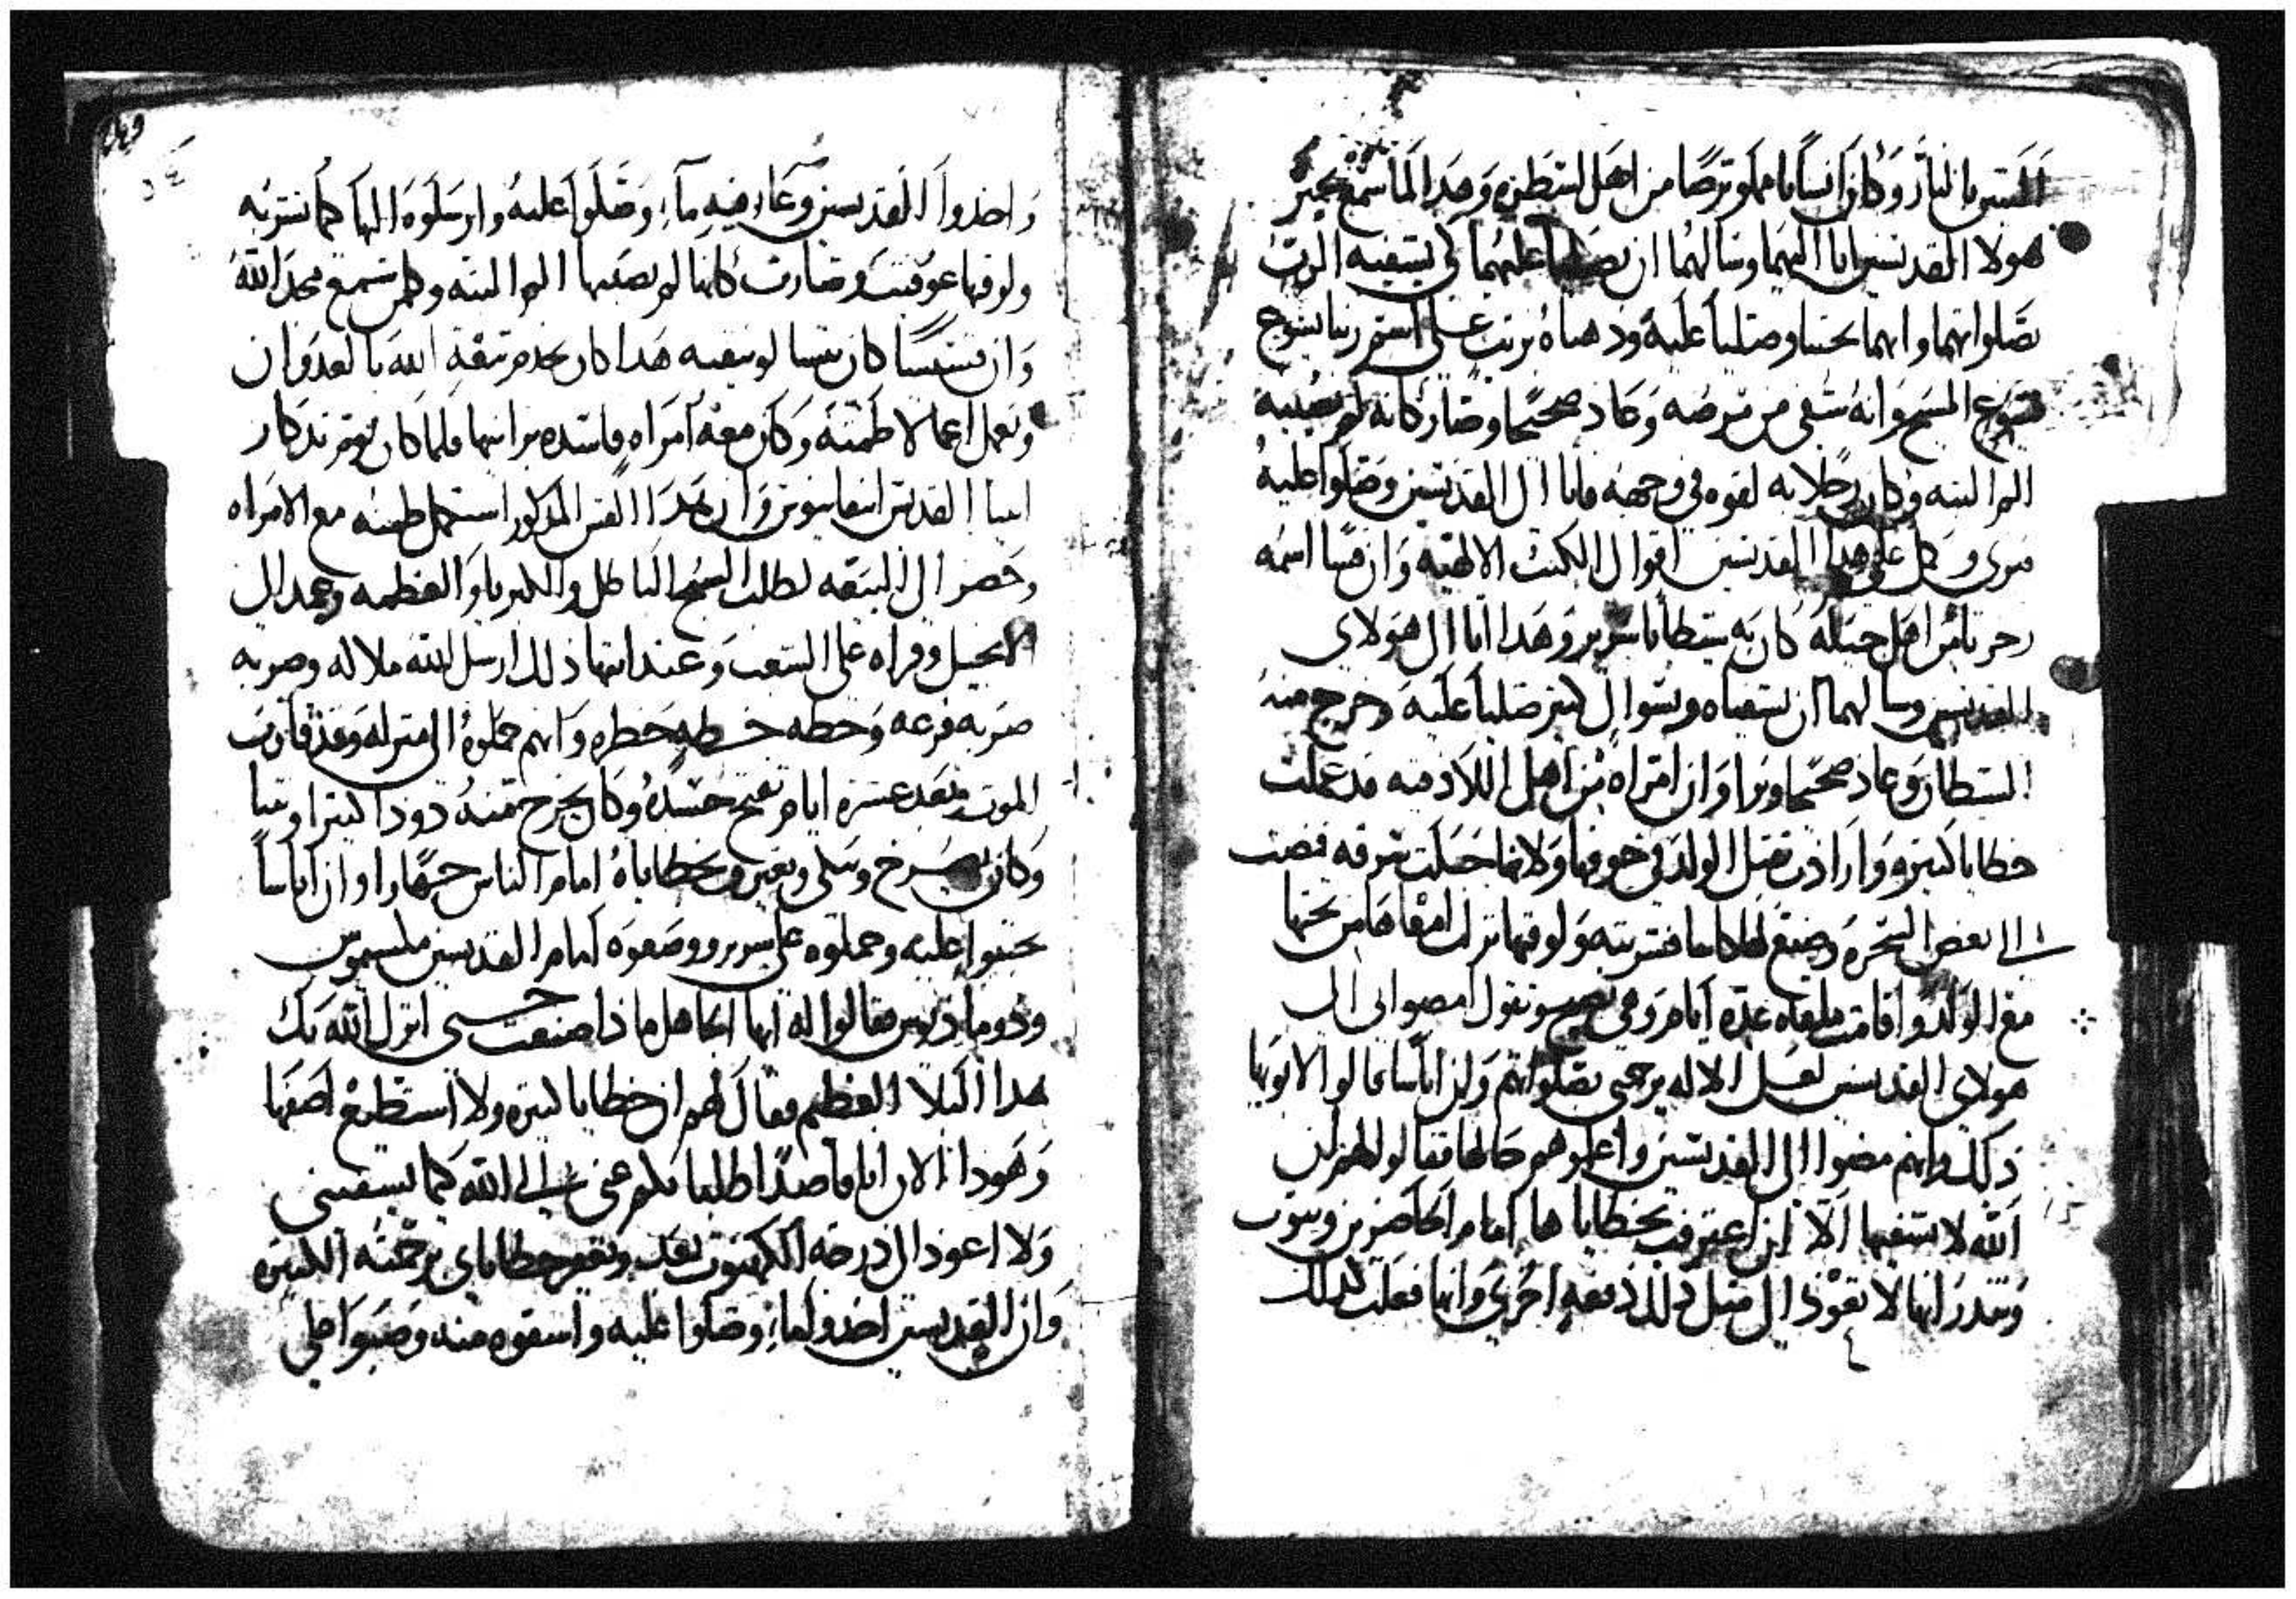 وكان انسانا مملو برصا من اهل وهدا لما سمع بخبر
هولا القديسين اتا اليهما وسالهما ان يصليا عليهما كي يشفيه الرب
بصلواتهما وانهما تحننا وصليا عليه ودهناه بزيت على اسم ربنا يسوع
يسوع المسيح وانه شفي من برصه وعاد صحيحا وصار كانه لم يصيبه
الم البته وكان رجلا به لقوه في وجهه فاتا الى القديسين وصلوا عليه
فبرى وكمل على هدا القديسين اقوال الكتب الالهيه وان قسا اسمه
من اهل كان به شيطانا شرير وهدا اتا الى هولاي
القديسين وسالهما ان يشفياه وبسوال كتير صليا عليه وخرج منه
الشيطان وعاد صحيحا وبرا وان امراه من اهل البلاد قد عملت
خطايا كتيره وارادت تقتل الولد في جوفها ولانها حبلت فمضت
الى بعض السحره وصنع لها كاسا فشربته ولوقتها نزلت امعاها من تحتها
مع الولد واقامت ملقاه عدة ايام وهي تصيح وتقول امضوا بي الى
هولاي القديسين لعل الاله يرحمني بصلواتهم وان اناسا قالوا لابويها
ذلك وانهم مضوا الى القديسين واعلموهم حالها فقالو لهم ان
الله لا يشفيها الا ان اعترفت بخطاياها امام الحاضرين وتتوب
وتندر انها لا تعود الى متل ذلك دفعه اخرى وانها فعلت كدلك
واخدوا القديسين وعا فيه ما وصلوا عليه وارسلوه اليها كما تشربه
ولوقتها عوفيت وصارت كانها لم يصبها الم البته وكلمن سمع مجد الله
وان قسيسا كان هدا كان يخدم بيعة الله بالعدوان
ويعمل اعمالا طمته وكان معه امراه فاسده فلما كان يوم تدكار
ابينا القديس وان هدا القس المدكور استعمل مع الامراه
وحضر الى البيعه لطلب السبح الباطل والكبريا والعظمه وعمد الى
الانجيل وقراه على الشعب وعند انتها ذلك ارسل الله ملاكه وضربه
ضربه فزعه وحطه حطه خطره وانهم حملوه الى منزله وقد قارب
الموت وبعد عشره ايام تفتح جسده وكان يخرج منه دودا كتيرا ونتنا
وكان يصرخ ويبكي ويعترف بخطاياه امام الناس جهارا وان اناسا
تحننوا عليه وحملوه على سرير ووضعوه امام القديسين
فقالوا له ايها الجاهل ما ذا صنعت حتى انزل الله بك
هدا البلا العظيم فقال لهم ان خطايا كتيره ولا استطيع اصفها
وهودا الان انا قاصدا طلباتكم عني الى الله كما يشفيني
ولا اعود الى درجه الكهنوت بعد ويغفر خطاياي برحمته الكتيره
وان القديسين اخدوا ما وصلوا عليه واسقوه منه وصبوا على